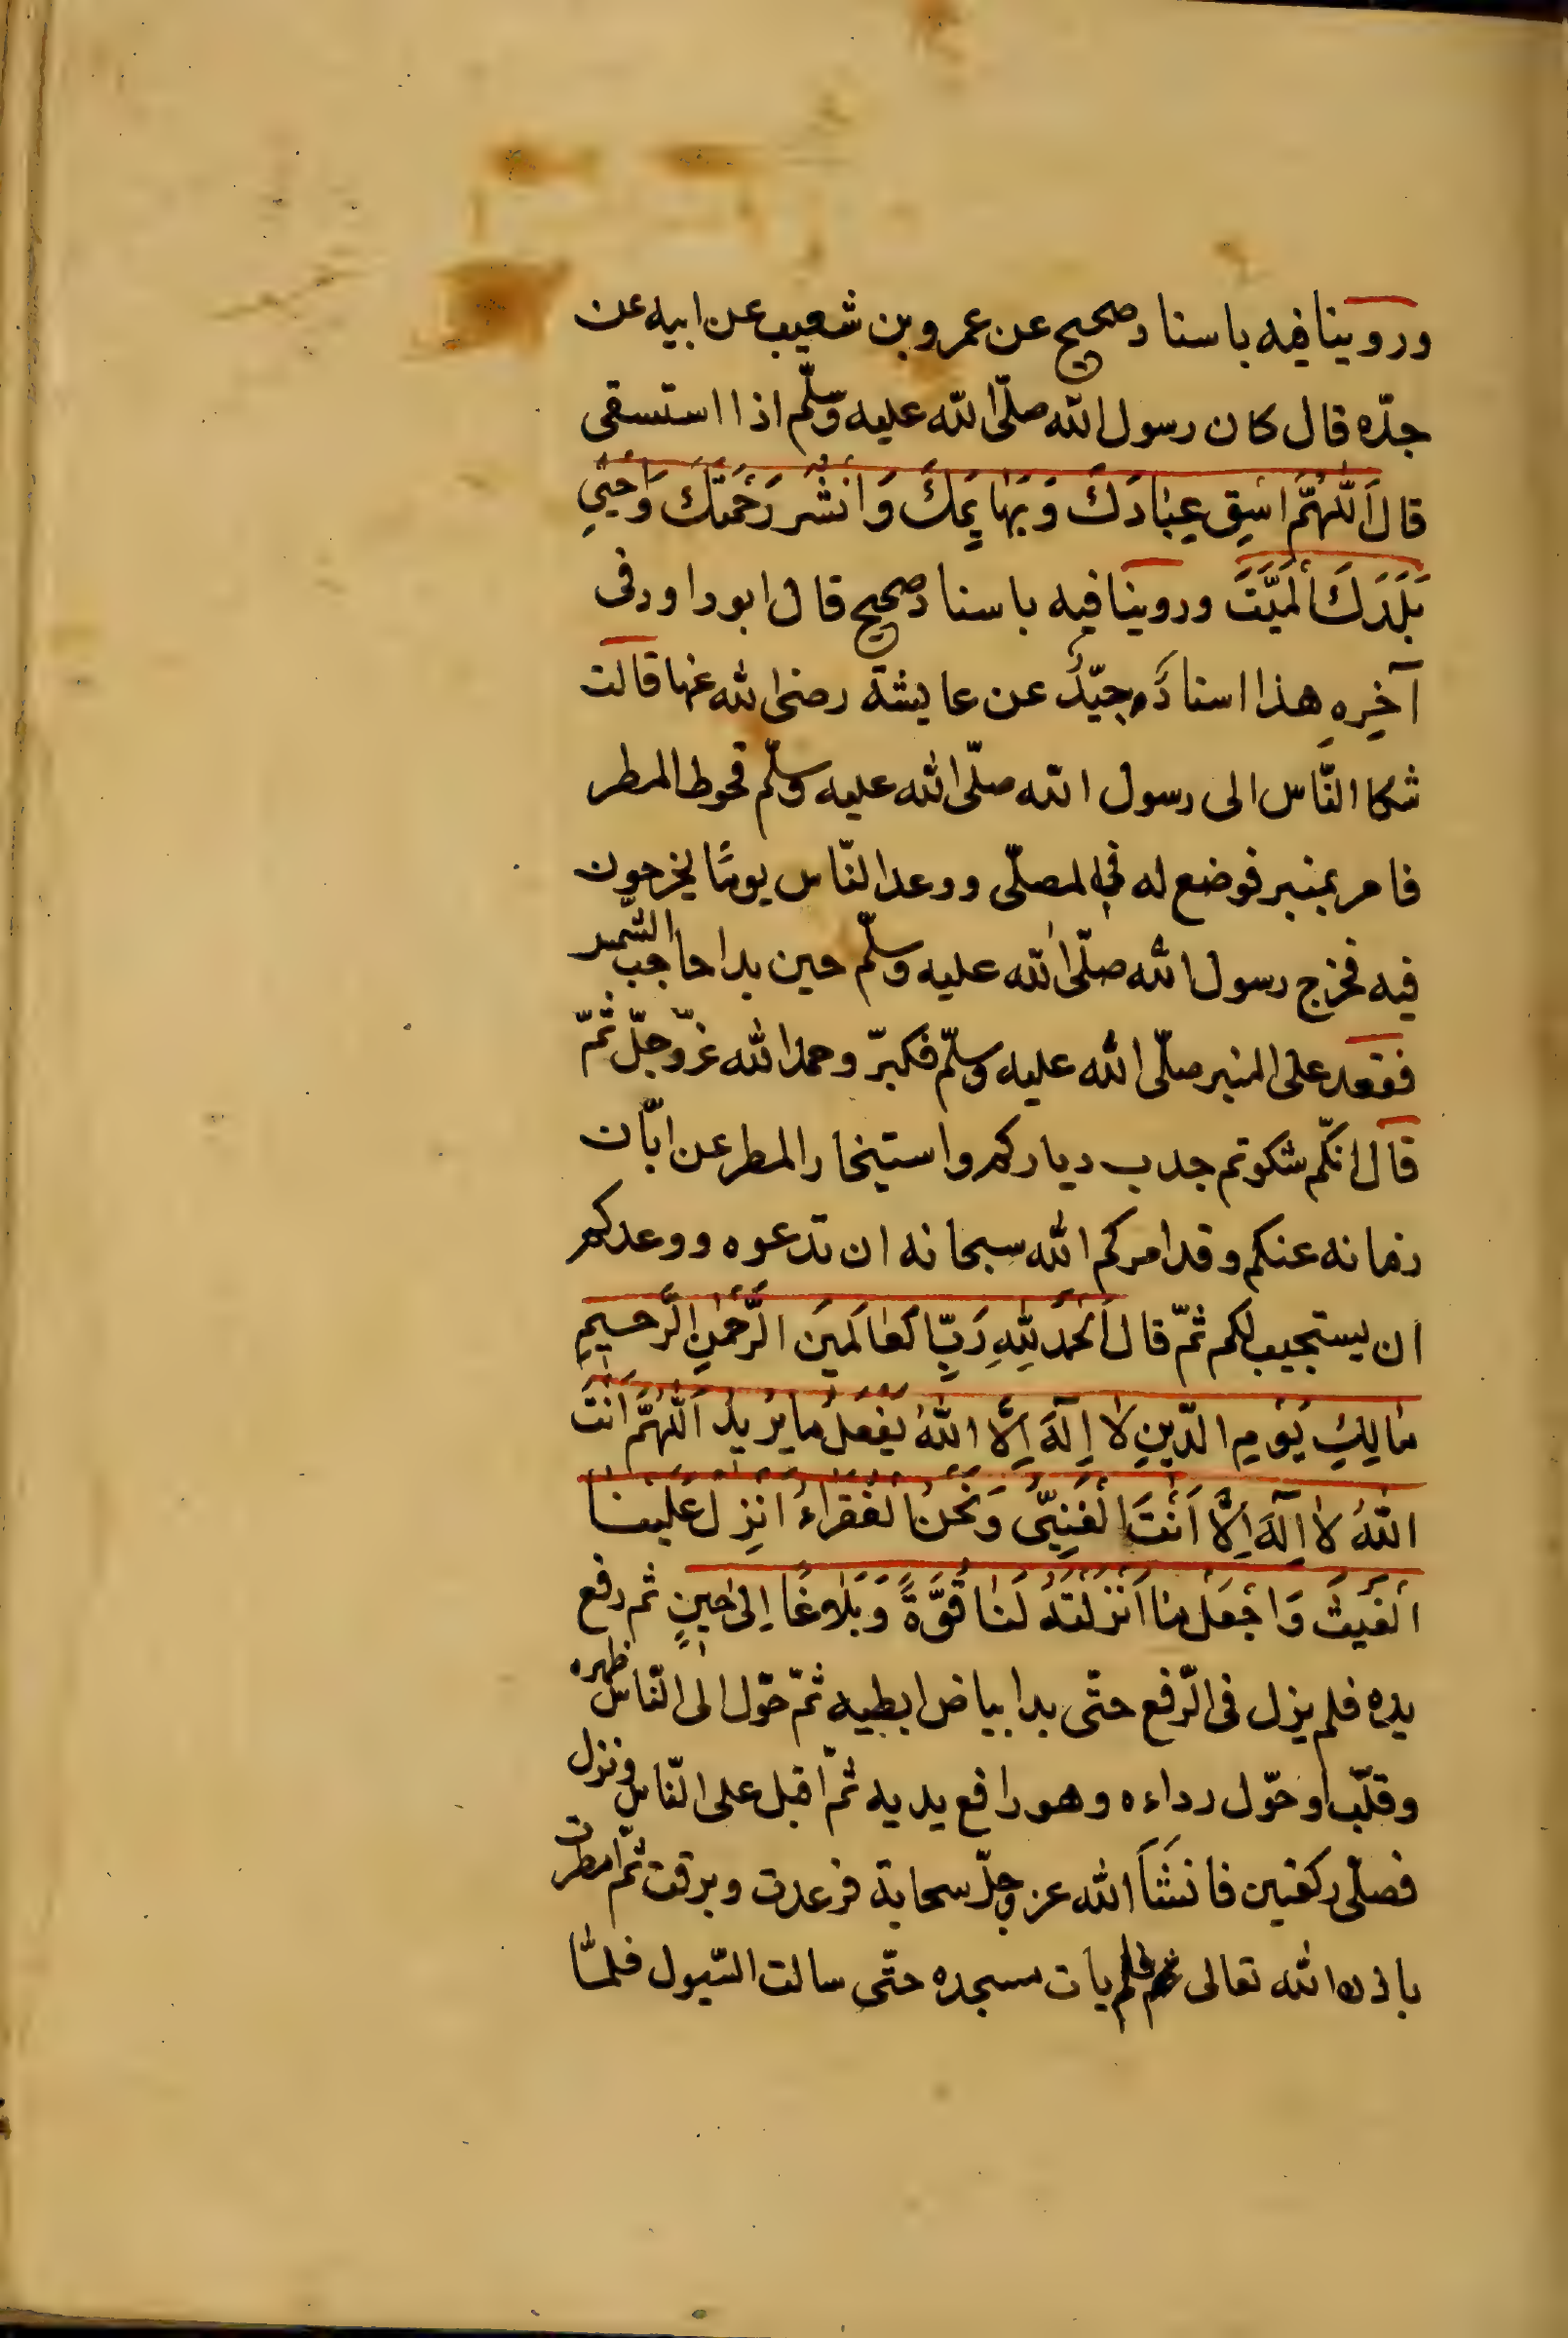 وروينا فيه باسناد صحيح عن عمرو بن شعيب عن ابيه عن
جدّه قال كان رسول الله صلّى الله عليه وسلّم اذا استسقى
قال اَللّٰهُمَّ اسْقِ عِبَادَكَ وَبَهَايِمَكَ وَانْشُرْ رَحْمَتَكَ وَاَحْيِيِ
بَلَدَكَ الْمَيِّتَ وروينا فيه باسناد صحيح قال ابو داود فى
آخِرِهِ هذا اسنادٌ جيّدٌ عن عايشة رضى الله عنها قالت
شكا النّاس الى رسول الله صلّى الله عليه وسلّم قحوط المطر
فامر بمنبر فوضع له في المصلّى ووعد النّاس يومًا يخرجون
فيه فخرج رسول الله صلّى الله عليه وسلّم حين بدا حاجب الشّمس
فقعد على المنبر صلّى الله عليه وسلّم فكبّر وحمد الله عزّ وجلّ ثمّ
قال انّكم شكوتم جدب دياركم واستيخار المطر عن ابّان
زمانه عنكم وقد امركم الله سبحانه ان تدعوه ووعدكم
ان يستجيب لكم ثمّ قال اَلْحَمْدُ لِلّٰهِ رَبِّ الْعَالَمِينَ الرَّحْمٰنِ الرَّحِيمِ
مَالِكِ يَوْمِ الدّينِ لا اِلٰهَ اِلَّا اللهُ يَفْعَلُ مَا يُرِيدُ اَللّٰهُمَّ اَنْتَ
اللهُ لا اِلٰهَ اِلَّا اَنْتَ الْغَنِيُّ وَنَحْنُ الْفُقَرَاءُ اَنْزِلْ عَلَيْنَا
الْغَيْثَ وَاجْعَلْ مَا اَنْزَلْتَهُ لَنَا قُوَّةً وَبَلَاغًا اِلىٰ حِينٍ ثم رفع
يده فلم يزل فى الرّفع حتّى بدا بياض ابطيه ثمّ حوّل الى النّاس ظهره
وقلّب او حوّل رداءه وهو رافع يديه ثمّ اقبل على النّاس ونزل
فصلّى ركعتين فانشَأَ الله عز وجلّ سحابة فرعدت وبرقت ثمّ امطرت
باذن الله تعالى فلم يات مسجده حتّى سالت السّيول فلمّا